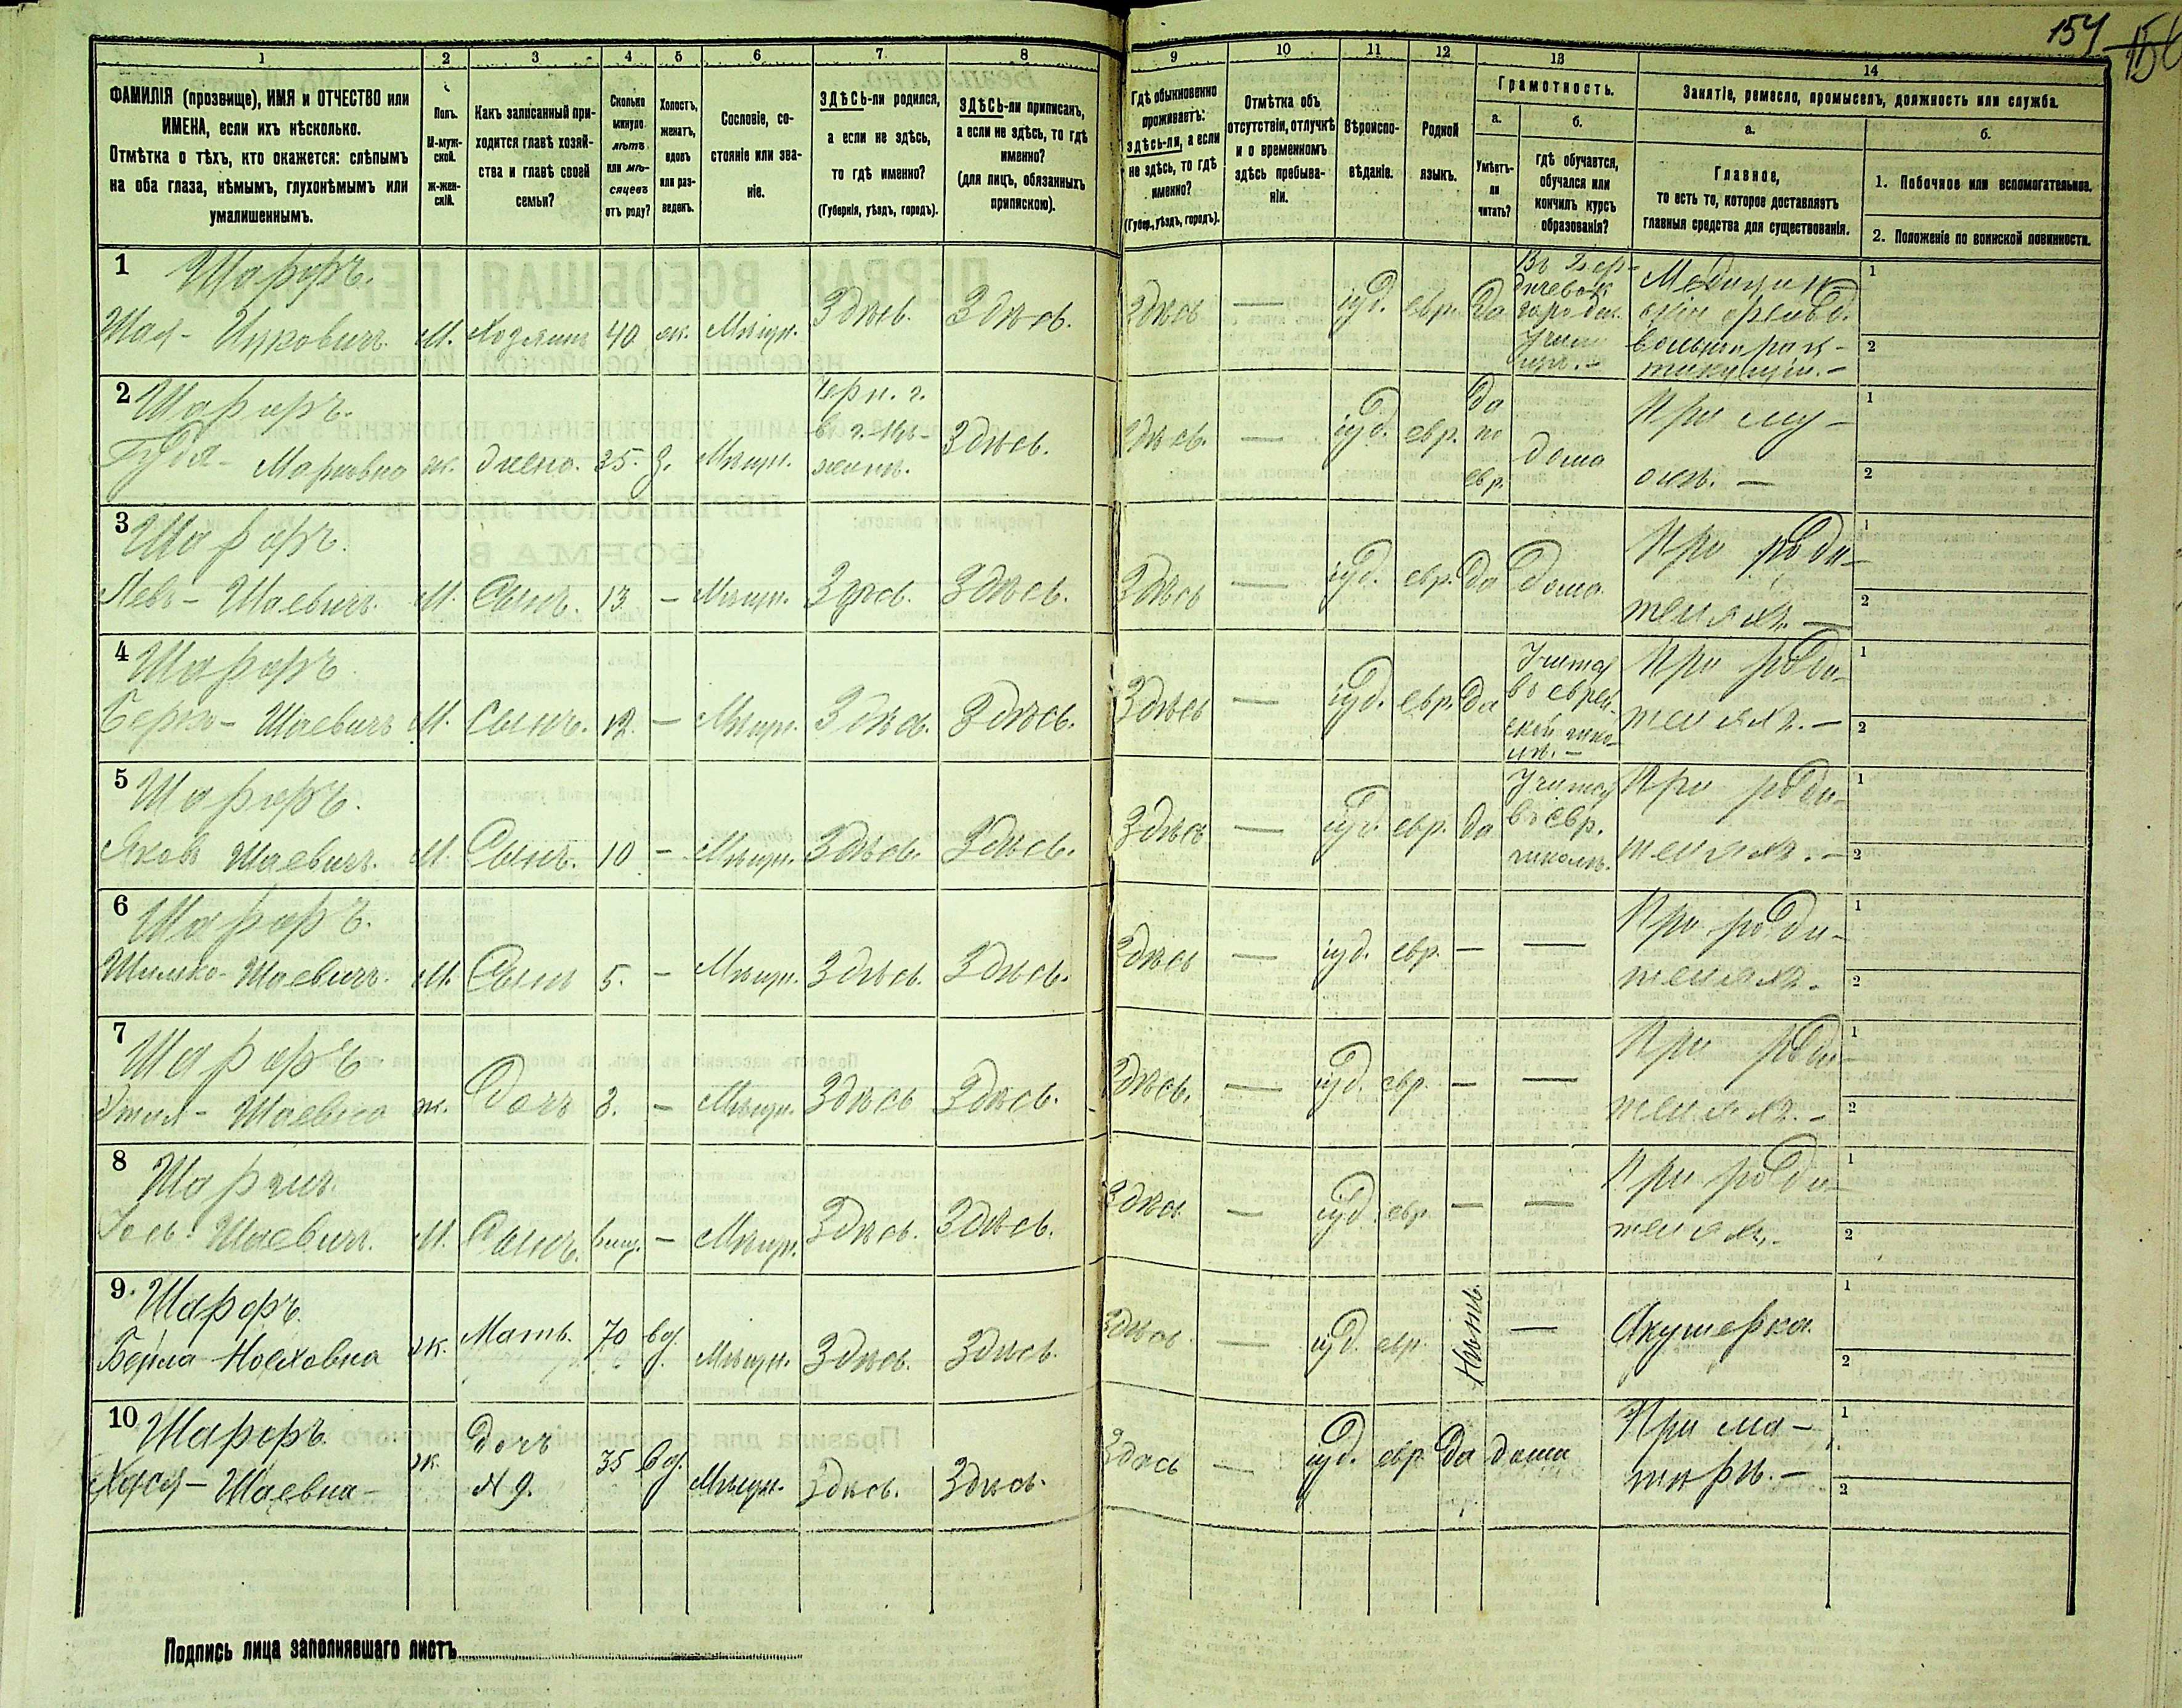 154
156
1 2 3 4 5 6 7 8 9 10 11 12 13 14
ФАМИЛІЯ (прозвище), ИМЯ и ОТЧЕСТВО или
ИМЕНА, если ихъ нѣсколько.
Отмѣтка о тѣхъ, кто окажется: слѣпымъ
на оба глаза, нѣмымъ, глухонѣмымъ или
умалишеннымъ.
Полъ.
М-муж-
ской.
ж-жен-
скій.
Какъ записанный при-
ходится главѣ хозяй-
ства и главѣ своей
семьи?
Сколько
минуло
лѣтъ
или мѣ-
сяцевъ
отъ роду?
Холостъ,
женатъ,
вдовъ
или раз-
веденъ.
Сословіе, со-
стояніе или зва-
ніе.
ЗДѢСЬ-ли родился,
а если не здѣсь,
то гдѣ именно?
(Губернія, уѣздъ, городъ).
ЗДѢСЬ-ли приписанъ,
а если не здѣсь, то гдѣ
именно?
(для лицъ, обязанныхъ
припискою).
Гдѣ обыкновенно
проживаетъ:
здѣсь-ли, а если
не здѣсь, то гдѣ
именно?
(Губер., уѣздъ, городъ).
Отмѣтка объ
отсутствіи, отлучкѣ
и о временномъ
здѣсь пребыва-
ніи.
Вѣроиспо-
вѣданіе.
Родной
языкъ.
Грамотность.
а.
Умѣетъ-
ли
читать?
б.
гдѣ обучается,
обучался или
кончилъ курсъ
образованія?
Занятіе, ремесло, промыселъ, должность или служба.
а.
Главное,
то есть то, которое доставляетъ
главныя средства для существованія.
б.
1. Побочное или вспомогательное.
2. Положеніе по воинской повинности.
1 Шарфъ.
Шая - Ицковичъ. М. Хозяинъ 40 ж. Мѣщ. Здѣсь. Здѣсь. Здѣсь — іуд. евр. Да
городск.
Медицинск
вольнопрак-
тикующій. -
1
2
2 Шарфъ.
Марковна ж. жена. 35. з. Мѣщ.
Черн. г.
в г.
Здѣсь. Здѣсь. — іуд. евр.
да
по
евр.
дома
При му-
жѣ. —
1
2
3 Шарфъ.
Левъ - Шаевичъ. М. Сынъ. 13 — Мѣщ. Здѣсь. Здѣсь. Здѣсь — іуд. евр. да дома
При роди-
теляхъ. —
1
2
4 Шарфъ
Берко - Шаевичъ М. Сынъ. 12. — Мѣщ. Здѣсь. Здѣсь. Здѣсь — іуд. евр. да
въ еврей-
ской шко-
лѣ. -
При роди-
теляхъ. -
1
2
5 Шарфъ.
Яковъ Шаевичъ. М. Сынъ. 10 — Мѣщ. Здѣсь. Здѣсь. Здѣсь — іуд. евр. да
въ евр.
школѣ.
При роди-
теляхъ. -
1
2
6 Шарфъ.
Шлемко - Шаевичъ. М. Сынъ 5. — Мѣщ. Здѣсь. Здѣсь. Здѣсь — іуд. евр. — —
При роди-
теляхъ.
1
2
7 Шарфъ
Этля - Шаевна ж. Дочь 3. — Мѣщ. Здѣсь Здѣсь. Здѣсь. — іуд. евр. — —
При роди-
теляхъ. -
1
2
8
Шаевичъ. М. Сынъ. — Мѣщ. Здѣсь. Здѣсь. Здѣсь — іуд. евр. — —
При роди-
теляхъ. -
1
2
9. Шарфъ.
Бейла Ноеховна ж. Мать. 70 вд. Мѣщ. Здѣсь. Здѣсь. Здѣсь — іуд. евр. Нѣтъ. — Акушерка
1
2
10 Шарфъ.
Хася - Шаевна - ж. Дочь
№ 9. 35 вд. Мѣщ. Здѣсь. Здѣсь. Здѣсь — іуд. евр. да дома
При ма-
тери. -
1
2
Подпись лица заполнявшаго листъ